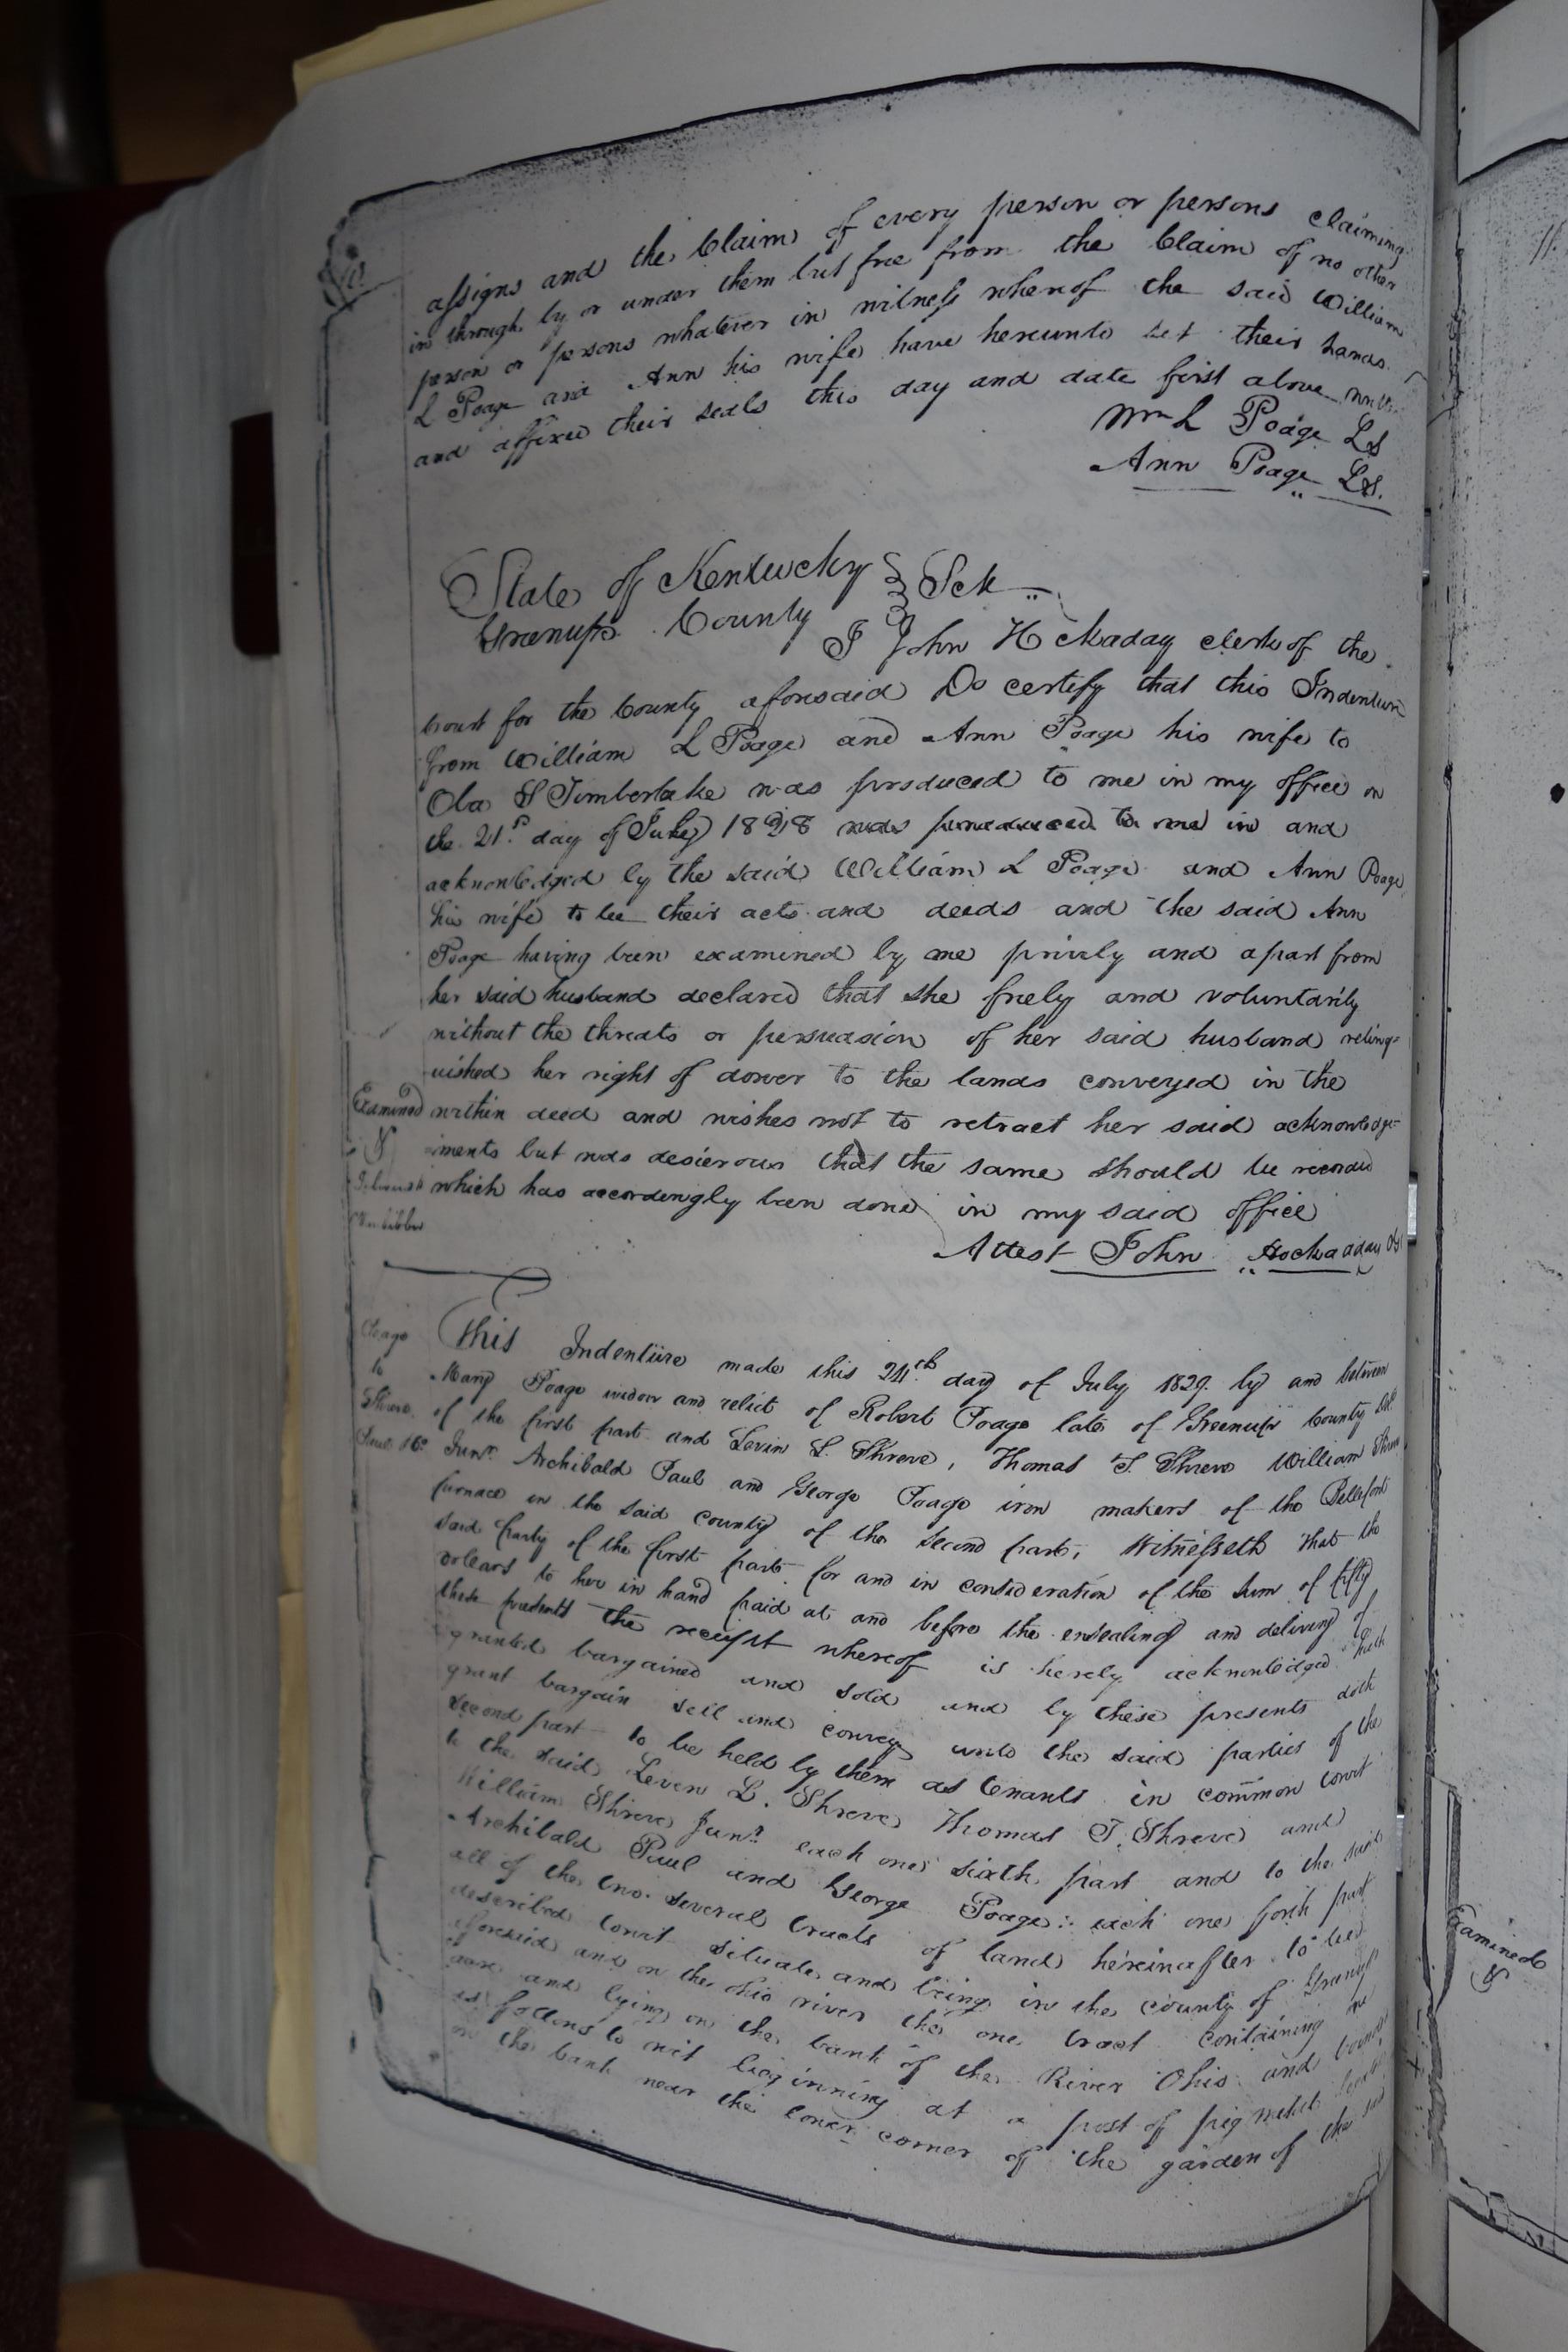 assigns and the Claim of every person or persons claiming
in through by or under them but free from the Claim of no other
person or persons whatever in witness whereof the said William
L Poage and Ann his wife have hereunto set their hands
and affixed their seals this day and date first above
Wm L Poage LS
Ann Poage LS.
State of Kentucky Sct
Greenup County
I John Hockaday clerk of the
Court for the County aforesaid Do certify that this Indenture
from William L Poage and Ann Poage his wife to
Ola S Timberlake was produced to me in my office on
the 21st day of July 1828 was produced to me in and
acknowledged by the said William L Poage and Ann Poage
his wife to be their acts and deeds and the said Ann
Poage having been examined by me privily and apart from
her said husband declared that she freely and voluntarily
without the threats or persuasion of her said husband relinq=
uished her right of dower to the lands conveyed in the
Examined
within deed and wishes not to retract her said acknowledge=
&
ments but was desierous that the same should be recorded
which has accordingly been done in my said office
Attest John Hockaday
Poage
to
Shreve
Paul &c
This Indenture made this 24th day of July 1829 by and between
Mary Poage widow and relict of Robert Poage late of Greenup County
of the first part and Levin L. Shreve, Thomas T. Shreve William Shreve
Junr. Archibald Paul and George Poage iron makers of the Bellefont
furnace in the said county of the second part, Witnesseth that the
said party of the first part for and in consideration of the sum of fifty
dollars to her in hand paid at and before the ensealing and delivery of
these presents the receipt whereof is hereby acknowledged hath
granted bargained and sold and by these presents doth
grant bargain sell and convey unto the said parties of the
second part to be held by them as tenants in common towit
to the said Leven L. Shreve Thomas T. Shreve and
William Shreve Junr. each one sixth part and to the said
Archibald Paul and George Poage: each one forth part
all of the two several tracts of land hereinafter to be
described towit situate and being in the county of Greenup
aforesaid and on the ohio river the one tract containing one
acre and lying on the bank of the River Ohio and bounded
as follows to wit beginning at a post of pig metal
on the bank near the lower corner of the garden of the said
Examined
&